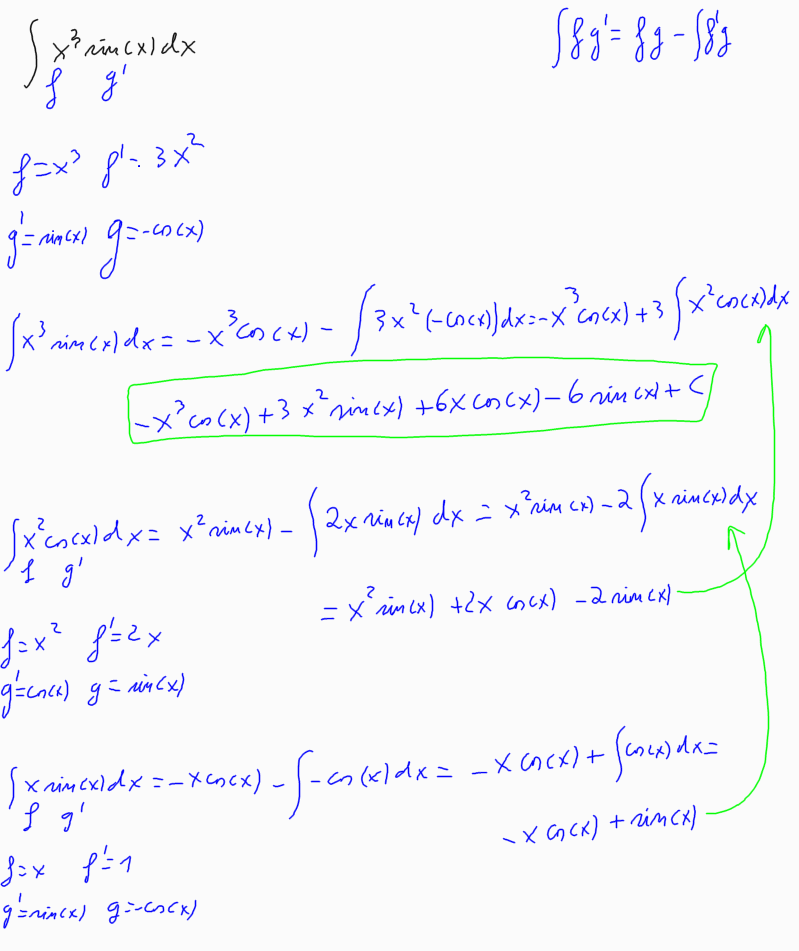 ∫ x³ sin(x) dx
f g'
∫fg' = fg - ∫f'g
f=x³ f'= 3x²
g'=sin(x) g=-cos(x)
∫x³ sin(x) dx = -x³ cos(x) - ∫3x²(-cos(x))dx=-x³cos(x)+3∫x²cos(x)dx
-x³cos(x)+3x²sin(x)+6x cos(x)-6 sin(x)+C
∫x²cos(x)dx= x²sin(x)-∫2x sin(x) dx = x²sin(x)-2∫x sin(x)dx
f g'
= x²sin(x) +2x cos(x) -2sin(x)
f=x² f'=2x
g'=cos(x) g=sin(x)
∫x sin(x)dx=-x cos(x)-∫-cos(x)dx= -x cos(x)+∫cos(x)dx=
f g'
-x cos(x)+sin(x)
f=x f'=1
g'=sin(x) g=-cos(x)